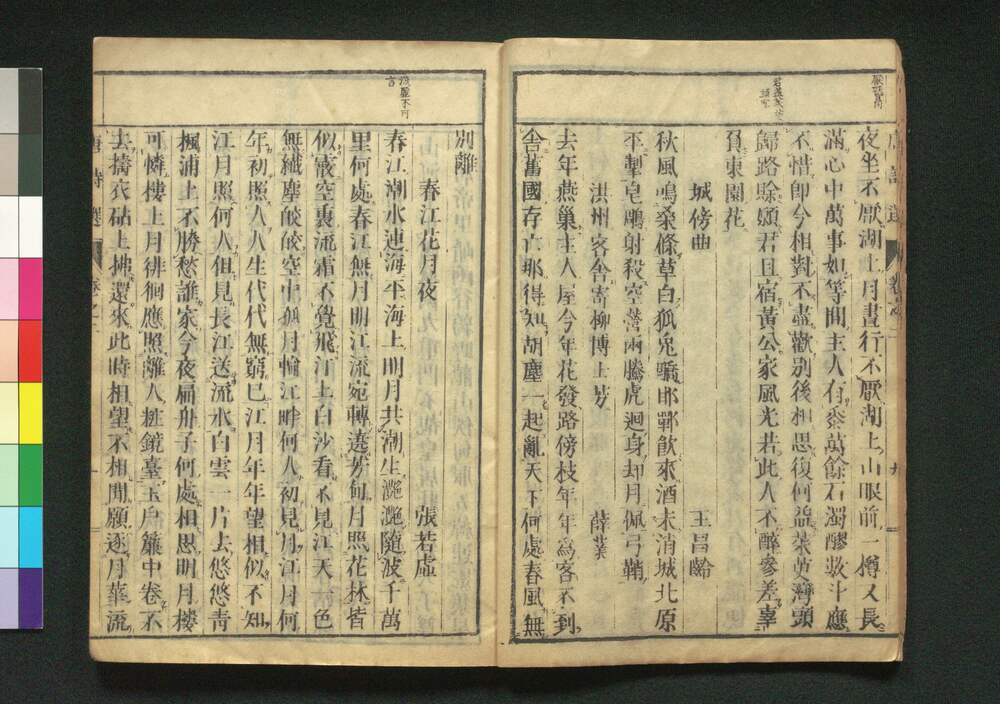 夜坐不厭湖上月晝行不厭湖上山眼前一樽又長
滿心中萬事如等閒主人有黍萬餘石濁醪數斗應
不惜即今相對不盡歡別後相思復何益茱萸灣頭
歸路賒願君且宿黃公家風光若此人不醉參差辜
負東園花
城傍曲
王昌齡
秋風鳴桑條草白狐兔驕邯鄲飲來酒未消城北原
平掣皂鵰射殺空營兩騰虎迴身却月佩弓鞘
洪州客舍寄柳博士芳
薛業
去年燕巢主人屋今年花發路傍枝年年為客不到
舍舊國存亡那得知胡塵一起亂天下何處春風無
別離
春江花月夜
張若虛
春江潮水連海平海上明月共潮生灔灔隨波千萬
里何處春江無月明江流宛轉遶芳甸月照花林皆
似霰空裏流霜不覺飛汀上白沙看不見江天一色
無纖塵皎皎空中孤月輪江畔何人初見月江月何
年初照人人生代代無窮已江月年年望相似不知
江月照何人但見長江送流水白雲一片去悠悠青
楓浦上不勝愁誰家今夜扁舟子何處相思明月樓
可憐樓上月徘徊應照離人粧鏡臺玉戶簾中卷不
去擣衣砧上拂還來此時相望不相聞願逐月華流
唐詩選